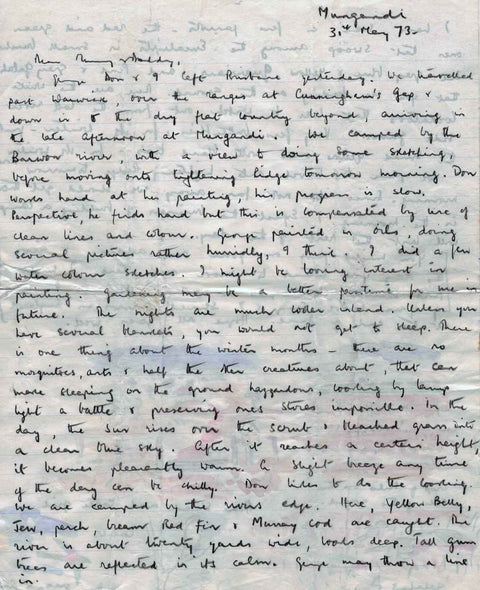 Mungandi
31st May 73.
Dear Mummy & Daddy,
George Don & I left Brisbane yesterday. We travelled
past Warwick, over the ranges at Cunningham's Gap &
down in to the dry flat country beyond, arriving in
the late afternoon at Mungandi. We camped by the
Barwon river, with a view to doing some sketching,
before moving onto Lightening Ridge tomorrow morning. Don
works hard at his painting, his progress is slow.
Perspective, he finds hard but this is compensated by use of
clean lines and colour. George painted in oils, doing
several pictures rather humidly, I think. I did a few
water colour sketches. I might be loosing interest in
painting. Gardening may be a better pastime for me in
future. The nights are much colder inland. Unless you
have several blankets, you would not get to sleep. There
is one thing about the winter months - there are no
mosquitoes, ants & half the other creatures about, that can
make sleeping on the ground hazardous, cooking by lamp
light a battle & preserving ones stores impossible. In the
day, the sun rises over the scrub & bleached grass into
a clear blue sky. After it reaches a certain height,
it becomes pleasantly warm. A slight breeze any time
of the day can be chilly. Don likes to do the cooking.
We are camped by the rivers edge. Here, Yellow Belly,
Jew, perch, bream Red Fin & Murray Cod are caught. The
river is about twenty yards wide, looks deep. Tall gum
trees are reflected in its calm. George may throw a line
in.